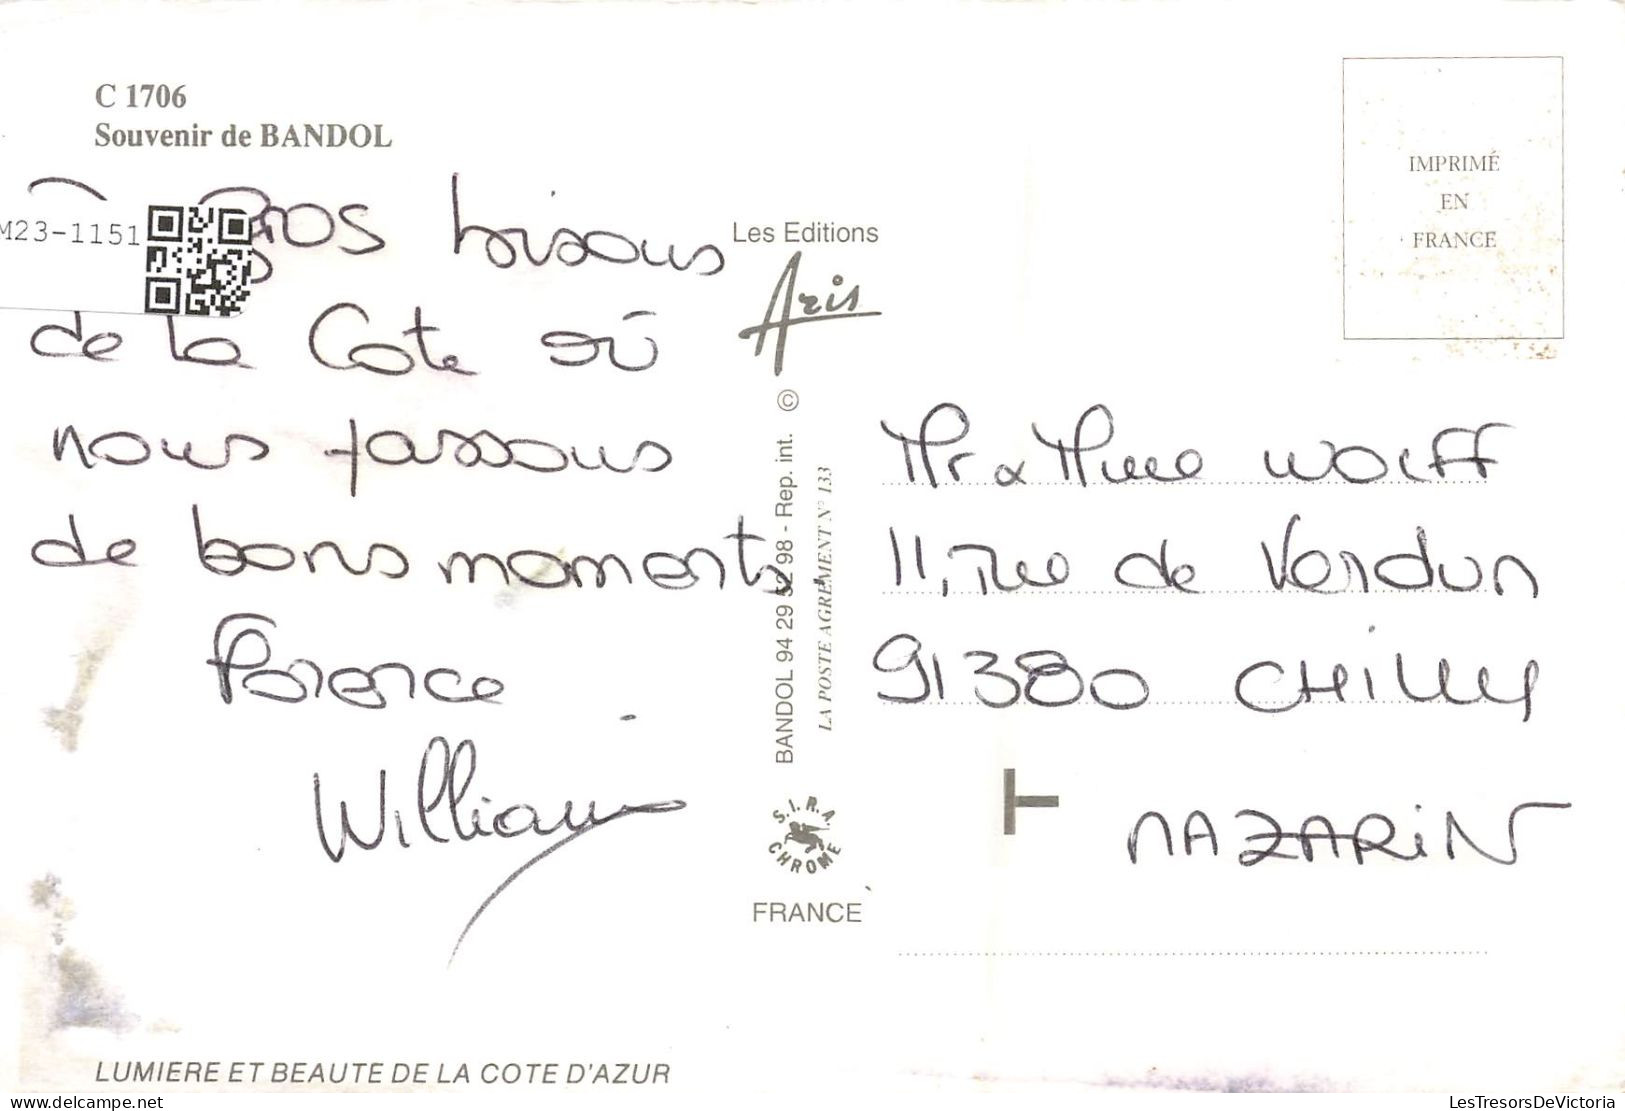 C 1706
Souvenir de BANDOL
M23-1151
Gros bisous
de la Cote où
nous passons
de bons moments.
Florence
William
LUMIERE ET BEAUTE DE LA COTE D'AZUR
Les Editions
Aris
BANDOL 94 29 52 98 - Rep. int. ©
LA POSTE AGRÉMENT N° 133
S.I.R.A.
CHROME
FRANCE
IMPRIMÉ
EN
FRANCE
Mr & Mme WOLFF
11, rue de Verdun
91380 CHILLY
MAZARIN
T
delcampe.net
LesTresorsDeVictoria